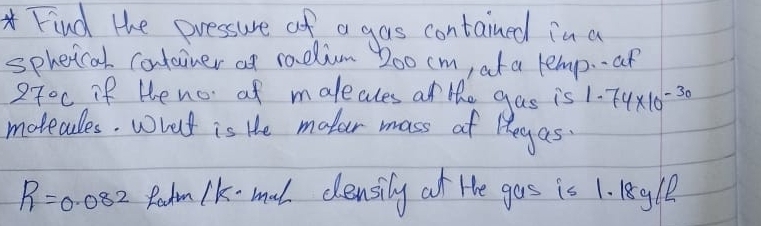 * Find the pressure of a gas contained in a
spherical container of radium 200 cm, at a temp. of
27°c if the no. of molecules of the gas is 1.74x10⁻³⁰
molecules. What is the molar mass of the gas.
R=0.082 Latm/k.mol density of the gas is 1.18g/l